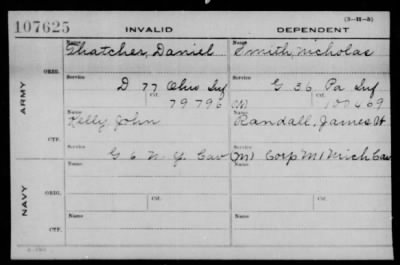 107625 INVALID DEPENDENT (3-11-5)
Name Name
Thatcher, Daniel Smith, Nicholas
ORIG.
Service Service
D 77 Ohio Inf G 36 Pa Inf
Ctf. Ctf.
79796 107469
ARMY
Name Name
Kelly, John Randall, James H
CTF.
Service
G 6 N. Y. Cav Corp M 1 Mich Cav
NAVY
Name Name
ORIG.
Service Service
Ctf. Ctf.
Name Name
CTF.
Service Service